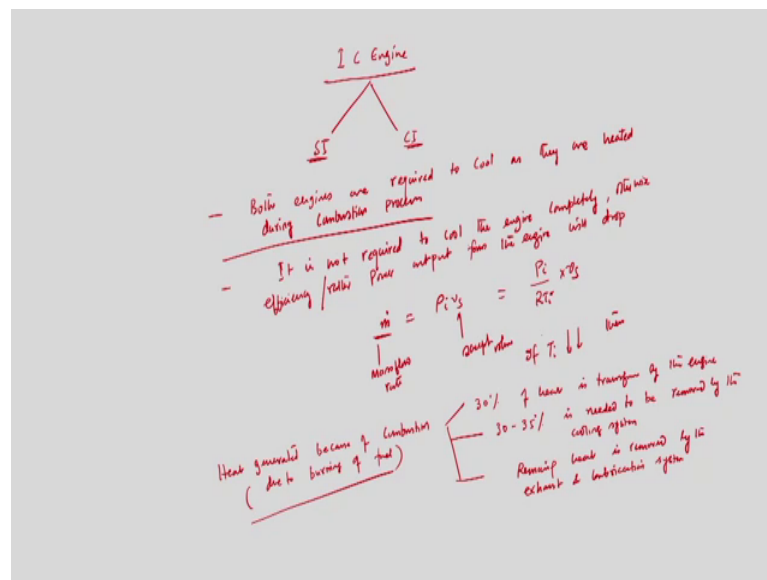 I C Engine
SI CI
- Both engines are required to cool as they are heated
during combustion process
- It is not required to cool the engine completely, otherwise
efficiency / rather power output from the engine will drop
ṁ = ρi vs = Pi / RTi × vs
mass flow rate swept volume if Ti ↓↓ then
Heat generated because of combustion
(due to burning of fuel)
30% of heat is transform by the engine
30-35% is needed to be removed by the
cooling system
Remaining heat is removed by the
exhaust & lubrication system